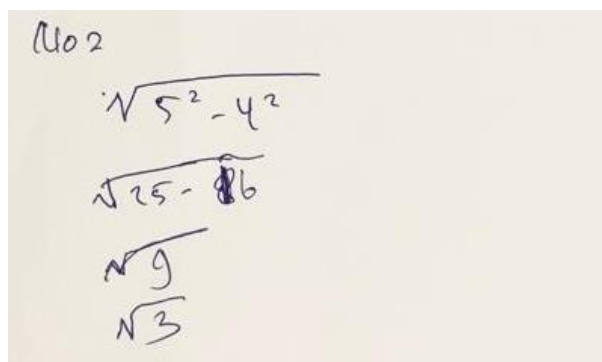 No 2
√5² - 4²
√25 - 16
√9
√3